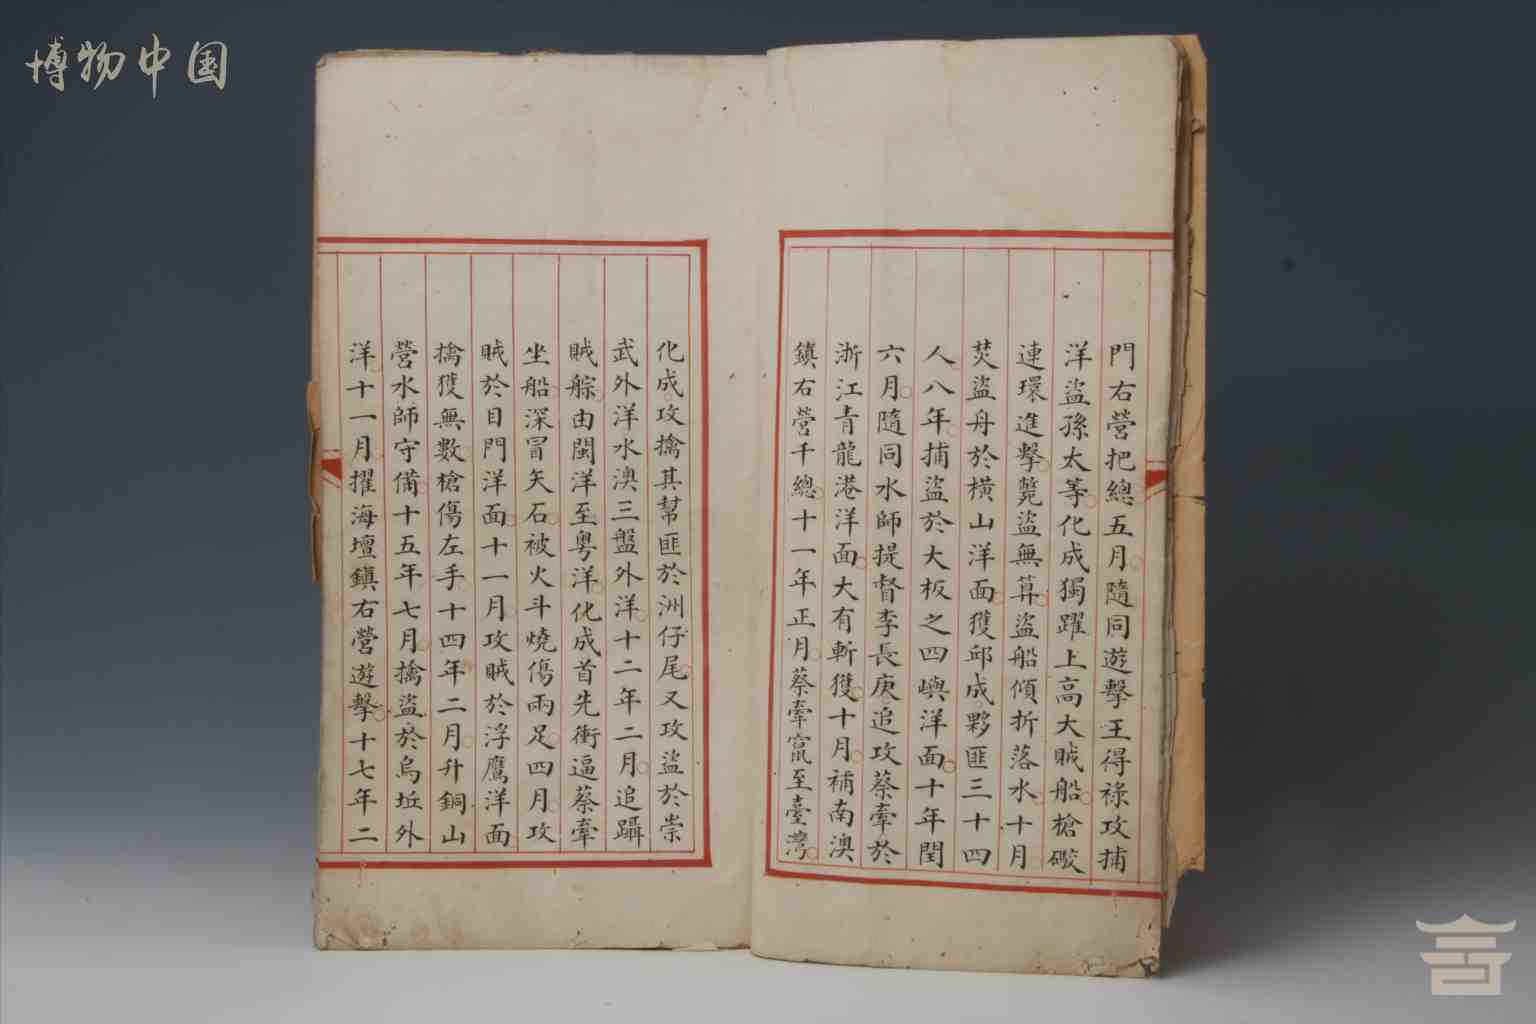 博物中国
門右營把總五月隨同遊擊王得祿攻捕
洋盜孫太等化成獨躍上高大賊船槍礮
連環進擊斃盜無算盜船傾折落水十月
焚盜舟於橫山洋面獲邱成夥匪三十四
人八年捕盜於大板之四嶼洋面十年閏
六月隨同水師提督李長庚追攻蔡牽於
浙江青龍港洋面大有斬獲十月補南澳
鎮右營千總十一年正月蔡牽竄至臺灣
化成攻擒其幫匪於洲仔尾又攻盜於崇
武外洋水澳三盤外洋十二年二月追躡
賊䑸由閩洋至粵洋化成首先衝逼蔡牽
坐船深冒矢石被火斗燒傷兩足四月攻
賊於目門洋面十一月攻賊於浮鷹洋面
擒獲無數槍傷左手十四年二月升銅山
營水師守備十五年七月擒盜於烏坵外
洋十一月擢海壇鎮右營遊擊十七年二